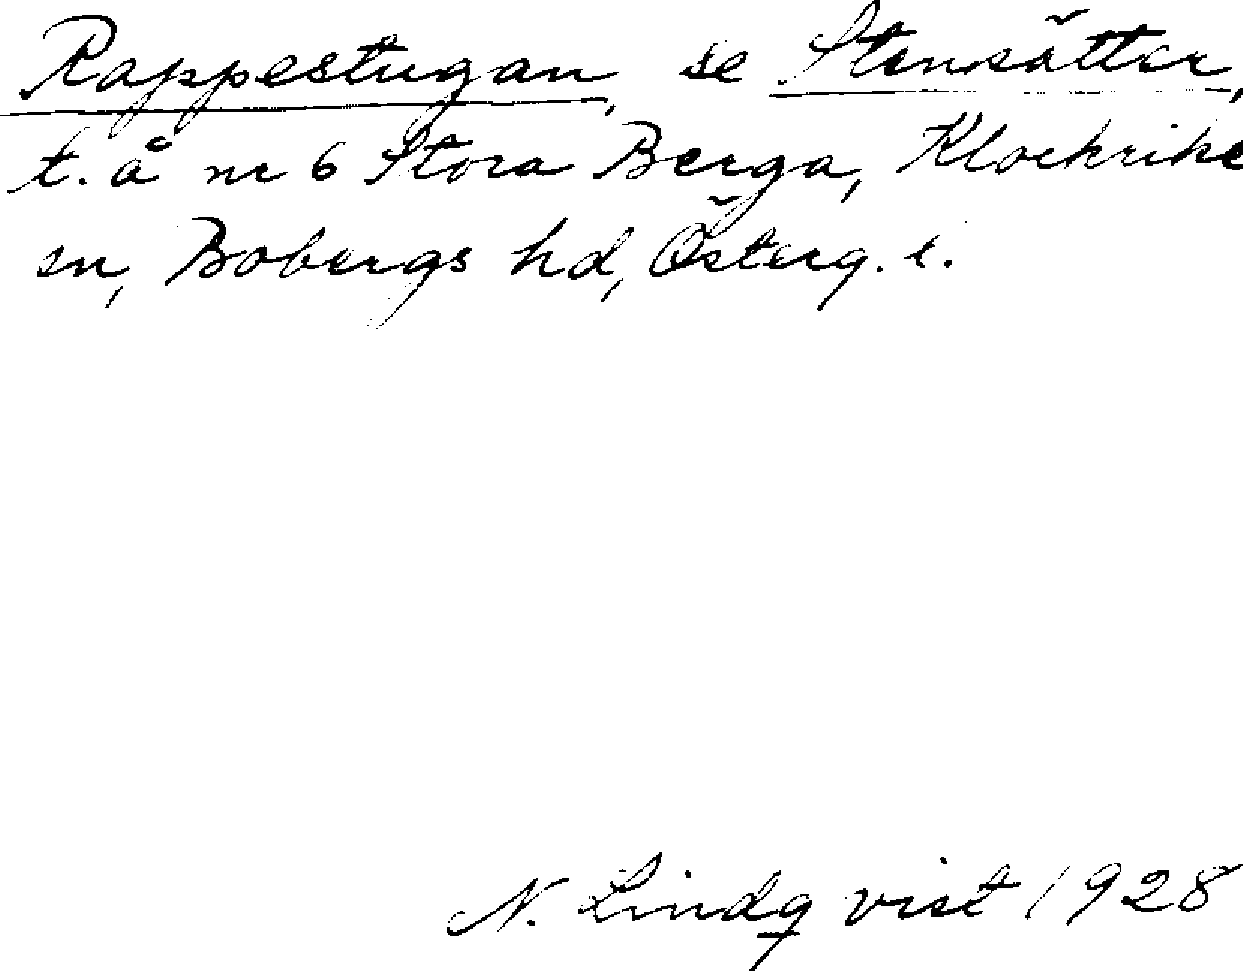 Rappestugan, se Stensätter,
t. å nr 6 Stora Berga, Klockrike
sn, Bobergs hd, Österg. l.
N. Lindqvist 1928